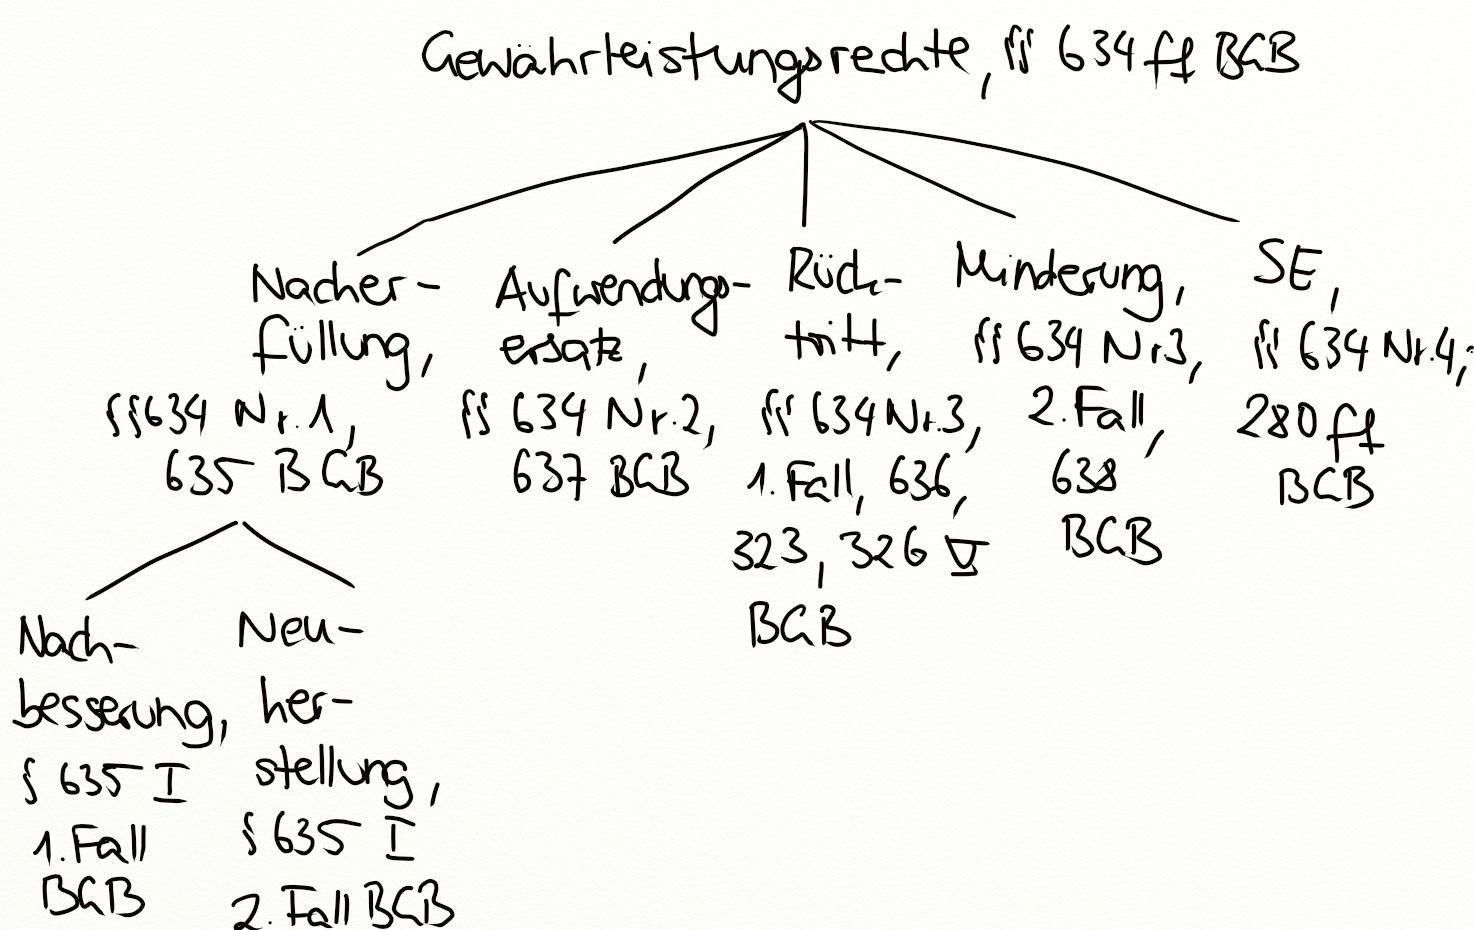 Gewährleistungsrechte, §§ 634 ff BGB
Nacher-
füllung,
§§ 634 Nr. 1,
635 BGB
Aufwendungs-
ersatz,
§§ 634 Nr. 2,
637 BGB
Rück-
tritt,
§§ 634 Nr. 3,
1. Fall, 636,
323, 326 V
BGB
Minderung,
§§ 634 Nr. 3,
2. Fall,
638
BGB
SE,
§§ 634 Nr. 4,
280 ff
BGB
Nach-
besserung,
§ 635 I
1. Fall
BGB
Neu-
her-
stellung,
§ 635 I
2. Fall BGB